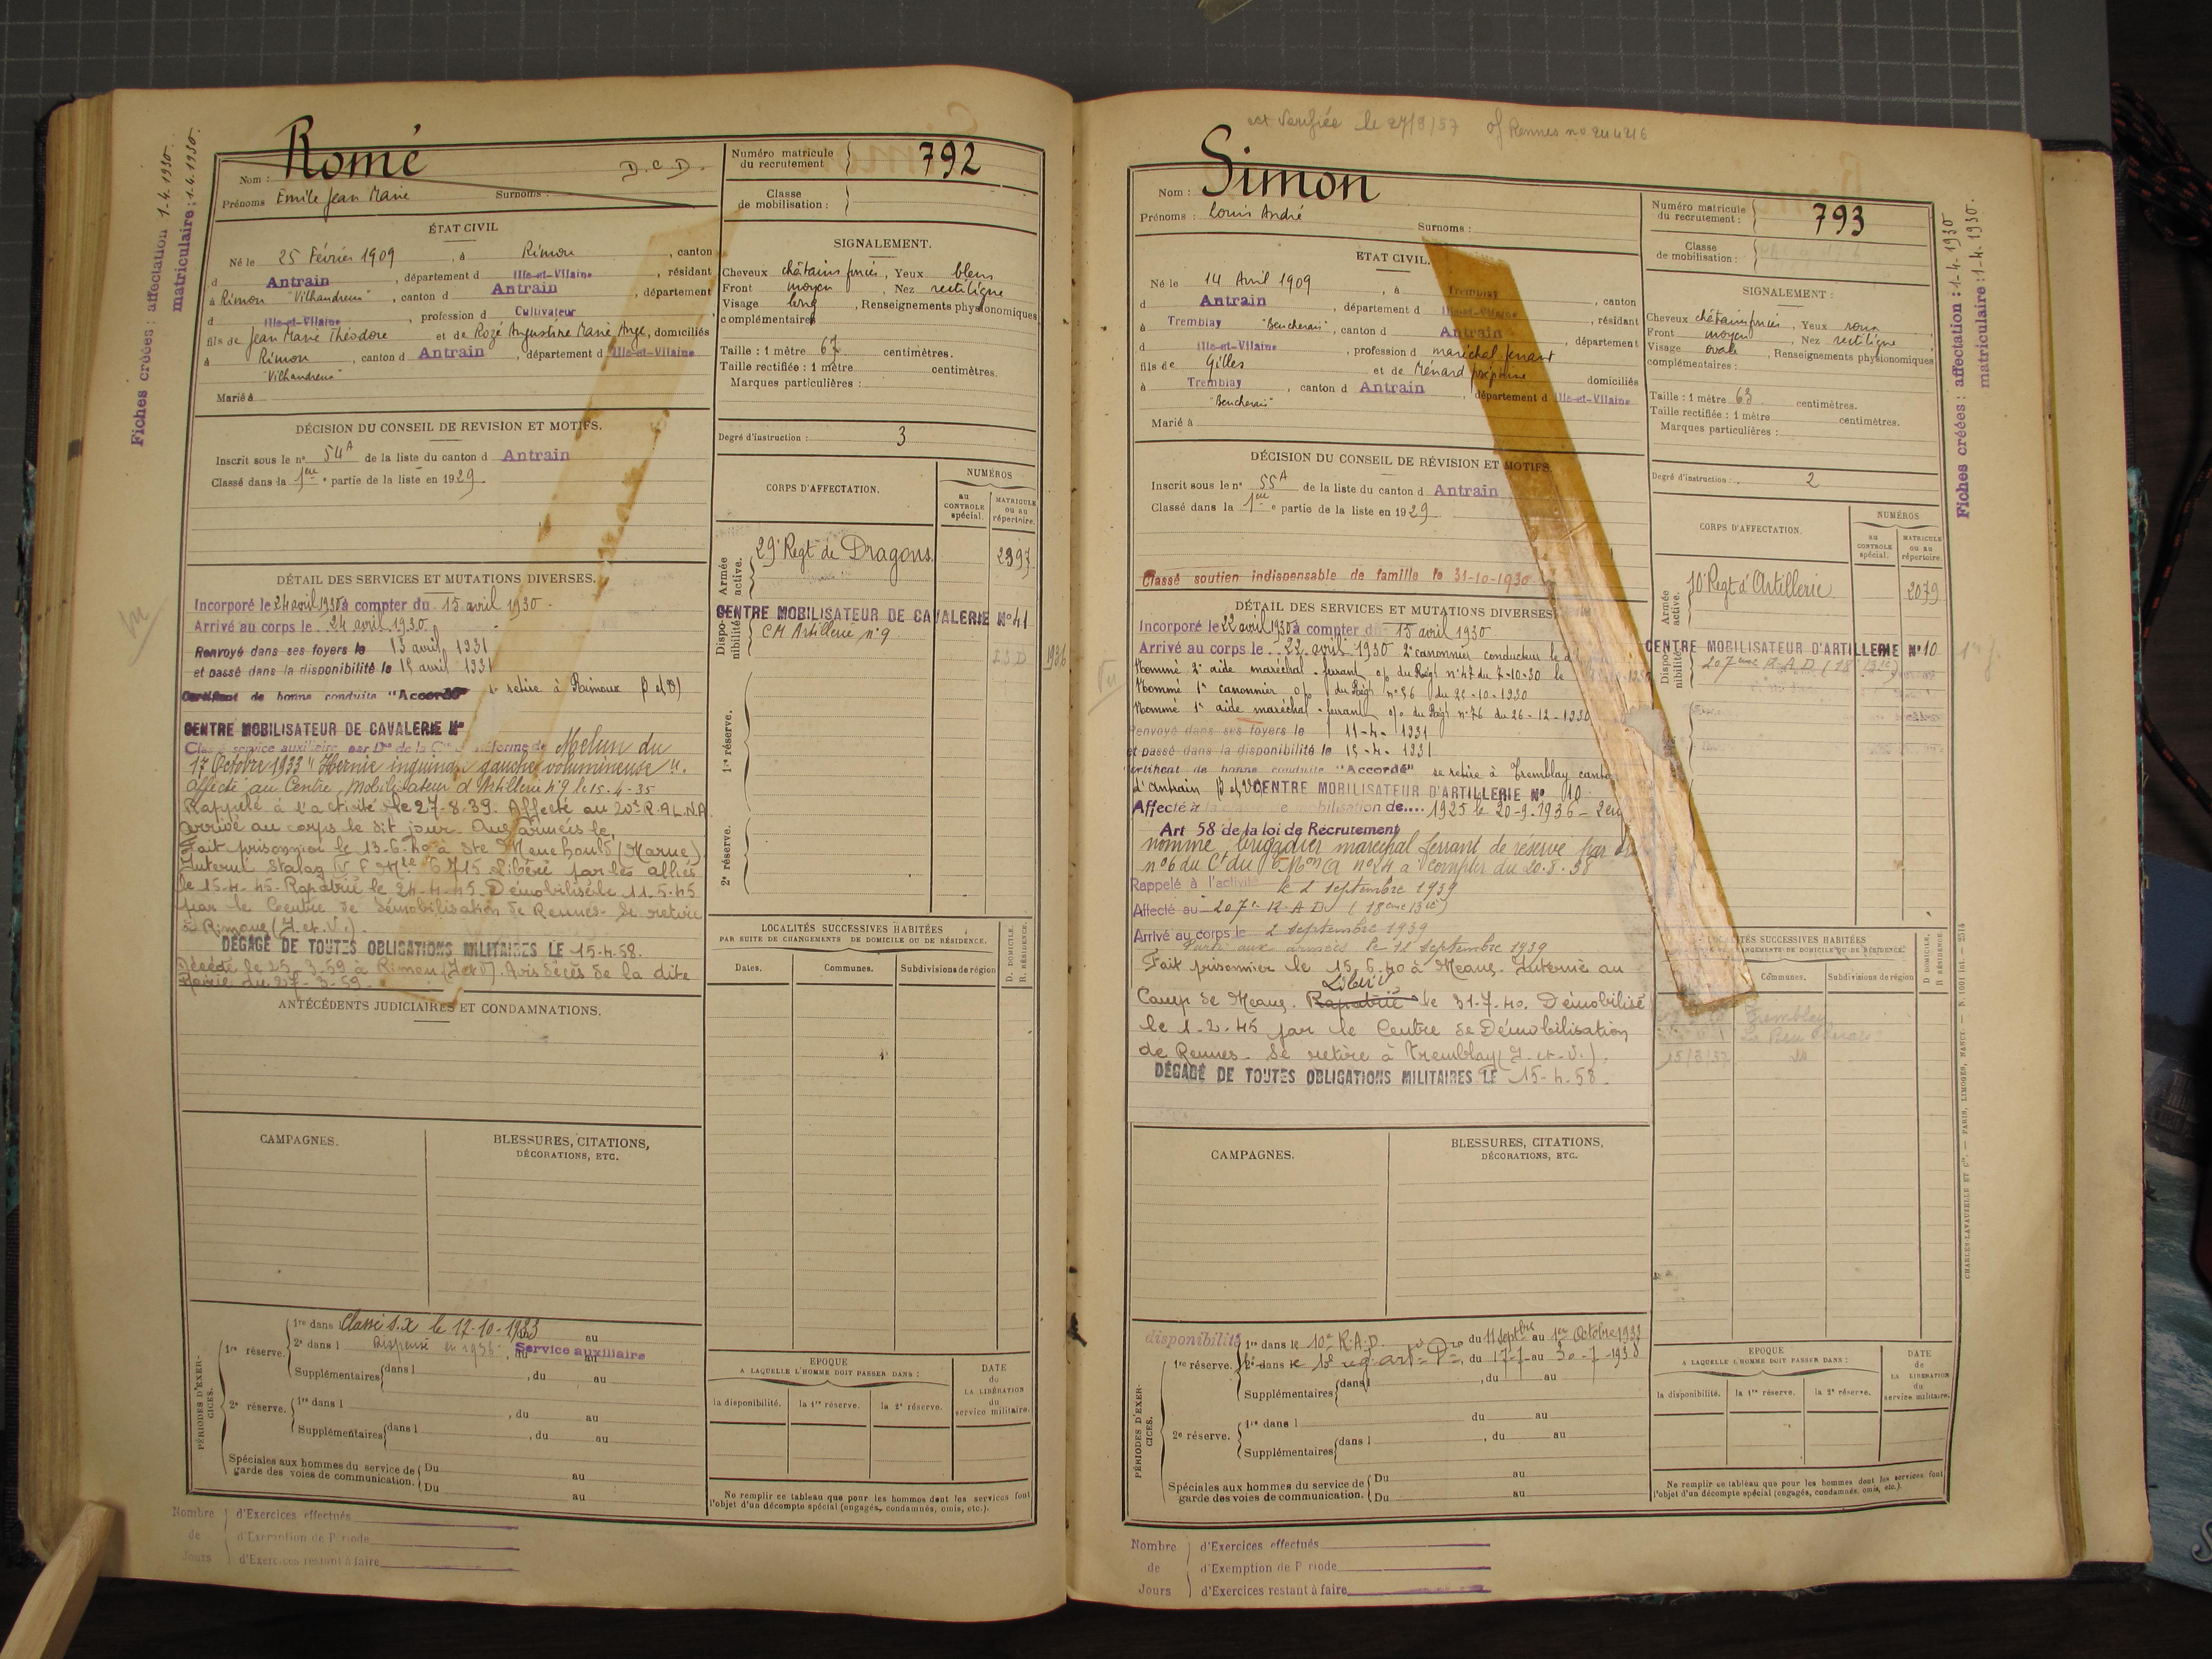 Fiches créées : affectation 1-4-1930.
matriculaire : 1.4.1930.
Nom : Romé
D.C.D.
Prénoms Emile Jean Marie Surnoms :
Numéro matricule du recrutement } 792
Classe de mobilisation : }
ÉTAT CIVIL
Né le 25 Février 1909, à Rimou, canton
d Antrain, département d Ille-et-Vilaine, résidant
à Rimou "Vilhandreux", canton d Antrain, département
d Ille-et-Vilaine, profession d Cultivateur
fils de Jean Marie Théodore et de Rozé Angustine Marie Ange, domiciliés
à Rimou, canton d Antrain, département d Ille-et-Vilaine
"Vilhandreux"
Marié à
SIGNALEMENT.
Cheveux châtains foncés, Yeux bleus
Front moyen, Nez rectiligne
Visage long, Renseignements physionomiques
complémentaires
Taille : 1 mètre 67 centimètres.
Taille rectifiée : 1 mètre centimètres.
Marques particulières :
Degré d'instruction : 3
DÉCISION DU CONSEIL DE REVISION ET MOTIFS.
Inscrit sous le n° 54A de la liste du canton d Antrain
Classé dans la 1ère partie de la liste en 1929.
CORPS D'AFFECTATION.
NUMÉROS
AU CONTROLE spécial.
MATRICULE ou au répertoire.
Armée active.
29e Regt de Dragons. 2397
CENTRE MOBILISATEUR DE CAVALERIE N°41
Disponibilité
C M Artillerie n°9
1936
1re réserve.
2e réserve.
DÉTAIL DES SERVICES ET MUTATIONS DIVERSES.
Incorporé le 24 avril 1930 à compter du 15 avril 1930.
Arrivé au corps le 24 avril 1930
Renvoyé dans ses foyers le 13 avril 1931
et passé dans la disponibilité le 15 avril 1931
Certificat de bonne conduite "Accordé" se retire à Rimoux
CENTRE MOBILISATEUR DE CAVALERIE N°
Classé service auxiliaire par Don de la Réforme de Melun du
17 Octobre 1933 "Hernie inguinale gauche volumineuse".
affecté au Centre Mobilisateur d'Artillerie n°9 le 15-4-35
Rappelé à l'activité le 27-8-39. Affecté au R.A.L.N.A
arrivé au corps le dit jour. Aux armées le
Fait prisonnier le 13-6-40 à Ste Menehould (Marne)
Interné Stalag IV F Mle 6715 Libéré par les alliés
le 15-4-45. Rapatrié le 24-4-45. Démobilisé le 11.5.45
par le Centre de Démobilisation de Rennes. Se retire
à Rimoux (I. et. V.).
DÉGAGÉ DE TOUTES OBLIGATIONS MILITAIRES LE 15-4-58.
Décédé le 25-3-59 à Rimou (I et V). Avis décès de la dite
Mairie du 27-3-59.
ANTÉCÉDENTS JUDICIAIRES ET CONDAMNATIONS.
LOCALITÉS SUCCESSIVES HABITÉES
PAR SUITE DE CHANGEMENTS DE DOMICILE OU DE RÉSIDENCE.
D. DOMICILE. R. RÉSIDENCE.
Dates. Communes. Subdivisions de région
CAMPAGNES.
BLESSURES, CITATIONS, DÉCORATIONS, ETC.
PÉRIODES D'EXERCICES.
1re réserve. 1re dans l Classé S.X le 17-10-1933 au
2e dans l Dispensé en 1936 du Service auxiliaire au
Supplémentaires dans l , du au
2e réserve. 1re dans l , du au
Supplémentaires dans l , du au
Spéciales aux hommes du service de garde des voies de communication. Du au
Du au
EPOQUE
A LAQUELLE L'HOMME DOIT PASSER DANS :
la disponibilité. la 1re réserve. la 2e réserve.
DATE de LA LIBÉRATION du service militaire.
Ne remplir ce tableau que pour les hommes dont les services font
l'objet d'un décompte spécial (engagés, condamnés, omis, etc.).
Nombre de Jours
d'Exercices effectués
d'Exemption de Période
d'Exercices restant à faire
Vérifiée le 27/8/37 Rennes no
Nom : Simon
Prénoms : Louis André
Surnoms :
Numéro matricule du recrutement : } 793
Classe de mobilisation :
ÉTAT CIVIL.
Né le 14 Avril 1909, à Tremblay, canton
d Antrain, département d Ille-et-Vilaine, résidant
à Tremblay "Beucherais", canton d Antrain, département
d Ille-et-Vilaine, profession d maréchal ferrant
fils de Gilles et de Ménard Joséphine domiciliés
à Tremblay, canton d Antrain, département d Ille-et-Vilaine
"Beucherais"
Marié à
SIGNALEMENT :
Cheveux châtains foncés, Yeux roux
Front moyen, Nez rectiligne
Visage ovale, Renseignements physionomiques
complémentaires :
Taille : 1 mètre 63 centimètres.
Taille rectifiée : 1 mètre centimètres.
Marques particulières :
Degré d'instruction : 2
Fiches créées : affectation : 1-4-1930
matriculaire : 1-4-1930.
DÉCISION DU CONSEIL DE RÉVISION ET MOTIFS.
Inscrit sous le n° 55A de la liste du canton d Antrain
Classé dans la 1ère partie de la liste en 1929
Classé soutien indispensable de famille le 31-10-1930
CORPS D'AFFECTATION.
NUMÉROS
AU CONTROLE spécial.
MATRICULE ou au répertoire.
Armée active.
10e Regt d'Artillerie 2079
CENTRE MOBILISATEUR D'ARTILLERIE N°10
Disponibilité
207ème R.A.D (18 13e)
DÉTAIL DES SERVICES ET MUTATIONS DIVERSES
Incorporé le 22 avril 1930 à compter du 15 avril 1930
Arrivé au corps le 22 avril 1930 2e canonnier conducteur le d
Nommé 2e aide maréchal-ferrant o/o du Régt n°47 du 7-10-30 le
Nommé 1er canonnier o/o du Régt n°56 du 22-10-1930
Nommé 1er aide maréchal-ferrant o/o du Régt n°76 du 26-12-1930
Renvoyé dans ses foyers le 11-4-1931
et passé dans la disponibilité le 15-4-1931
Certificat de bonne conduite "Accordé" se retire à Tremblay canton
d'Antrain CENTRE MOBILISATEUR D'ARTILLERIE N° 10
Affecté à la classe de mobilisation de.... 1925 le 20-9-1936 -
Art 58 de la loi de Recrutement
nommé brigadier maréchal ferrant de réserve par
n°6 du Ct du n°24 à compter du 20-8-38
Rappelé à l'activité le 2 septembre 1939
Affecté au 207e R A D (18ème 13e)
Arrivé au corps le 2 septembre 1939
Parti aux armées le 12 septembre 1939
Fait prisonnier le 15.6.40 à Meaux. Interné au
Libéré
Camp de Meaux. Rapatrié le 31-7-40. Démobilisé
le 1-2-45 par le Centre de Démobilisation
de Rennes. Se retire à Tremblay (I.-et-V.).
DÉGAGÉ DE TOUTES OBLIGATIONS MILITAIRES LE 15-4-58.
LOCALITÉS SUCCESSIVES HABITÉES
CHANGEMENTS DE DOMICILE OU DE RÉSIDENCE.
D DOMICILE. R RÉSIDENCE.
Communes. Subdivisions de région
Tremblay
15/3/37
CAMPAGNES.
BLESSURES, CITATIONS, DÉCORATIONS, ETC.
PÉRIODES D'EXERCICES.
disponibilité 1re dans le 10e R.A.D. du 11 septbre au 1er Octobre 1933
1re réserve. dans le du 17-7 au 30-7-1938
Supplémentaires dans l , du au
2e réserve. 1re dans l du au
Supplémentaires dans l , du au
Spéciales aux hommes du service de garde des voies de communication. Du au
Du au
EPOQUE
A LAQUELLE L'HOMME DOIT PASSER DANS :
la disponibilité. la 1re réserve. la 2e réserve.
DATE de LA LIBÉRATION du service militaire.
Ne remplir ce tableau que pour les hommes dont les services font
l'objet d'un décompte spécial (engagés, condamnés, omis, etc.).
CHARLES-LAVAUZELLE ET Cie. — PARIS, LIMOGES, NANCY. — N. 1001 int. — 2514
Nombre de Jours
d'Exercices effectués
d'Exemption de Période
d'Exercices restant à faire